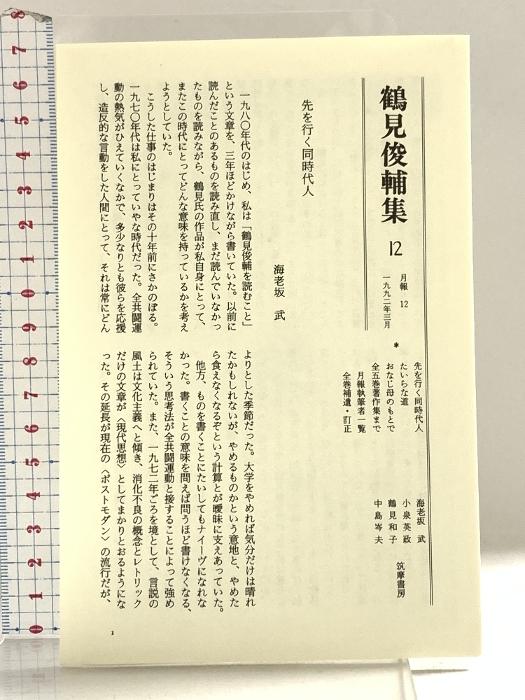 鶴見俊輔集 12
月報 12
一九九二年三月
*
先を行く同時代人 海老坂 武
たいらな道 小泉英政
おなじ母のもとで 鶴見和子
全五巻著作集まで 中島岑夫
月報執筆者一覧
全巻補遺・訂正
筑摩書房
先を行く同時代人
海老坂 武
一九八〇年代のはじめ、私は「鶴見俊輔を読むこと」
という文章を、三年ほどかけながら書いていた。以前に
読んだことのあるものを読み直し、まだ読んでいなかっ
たものを読みながら、鶴見氏の作品が私自身にとって、
またこの時代にとってどんな意味を持っているかを考え
ようとしていた。
こうした仕事のはじまりはその十年前にさかのぼる。
一九七〇年代は私にとっていやな時代だった。全共闘運
動の熱気がひえていくなかで、多少なりとも彼らを応援
し、造反的な言動をした人間にとって、それは常にどん
よりとした季節だった。大学をやめれば気分だけは晴れ
たかもしれないが、やめるものかという意地と、やめた
ら食えなくなるぞという計算とが曖昧に支えあっていた。
他方、ものを書くことにたいしてもナイーヴになれな
かった。書くことの意味を問えば問うほど書けなくなる、
そういう思考法が全共闘運動と接することによって強め
られていた。また、一九七二年ごろを境として、言説の
風土は文化主義へと傾き、消化不良の概念とレトリック
だけの文章が〈現代思想〉としてまかりとおるようにな
った。その延長が現在の〈ポストモダン〉の流行だが、
1
0 1 2 3 4 5 6 7 8 9 0 1 2 3 4 5 6 7 8